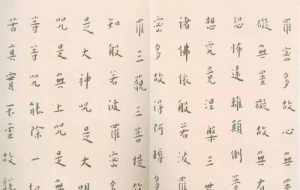 羅密多故心無
礙無罣礙故無
恐怖遠離顛倒
想究竟涅槃三
諸佛依般若波
密多故得阿耨
羅三藐三菩提
知般若波羅密
是大神咒是大明
咒是無上咒是
等等咒能除一
苦真實不虛故